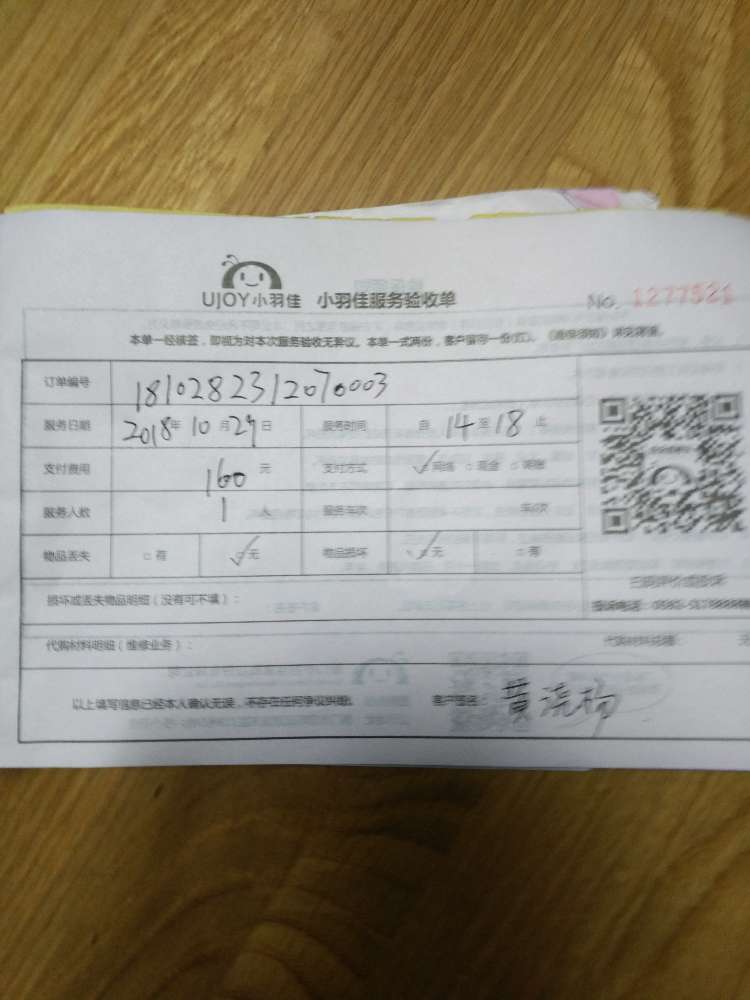 UJOY小羽佳 小羽佳服务验收单 No. 1277521
本单一经该签，即视为对本次服务验收无异议。本单一式两份，客户留存一份
订单编号 1810282312070003
服务日期 2018年10月29日 服务时间 自14至18止
支付费用 160元 支付方式 ✓网络 □现金 □
服务人数 1人 服务车次 车次
物品丢失 □有 ✓无 物品损坏 ✓无 □有
损坏或丢失物品明细（没有可不填）：
扫码评价或投诉
投诉电话：
代购材料明细（维修业务）： 代购材料总额： 元
以上填写信息已经本人确认无误，不存在任何争议纠纷。 客户签名： 黄